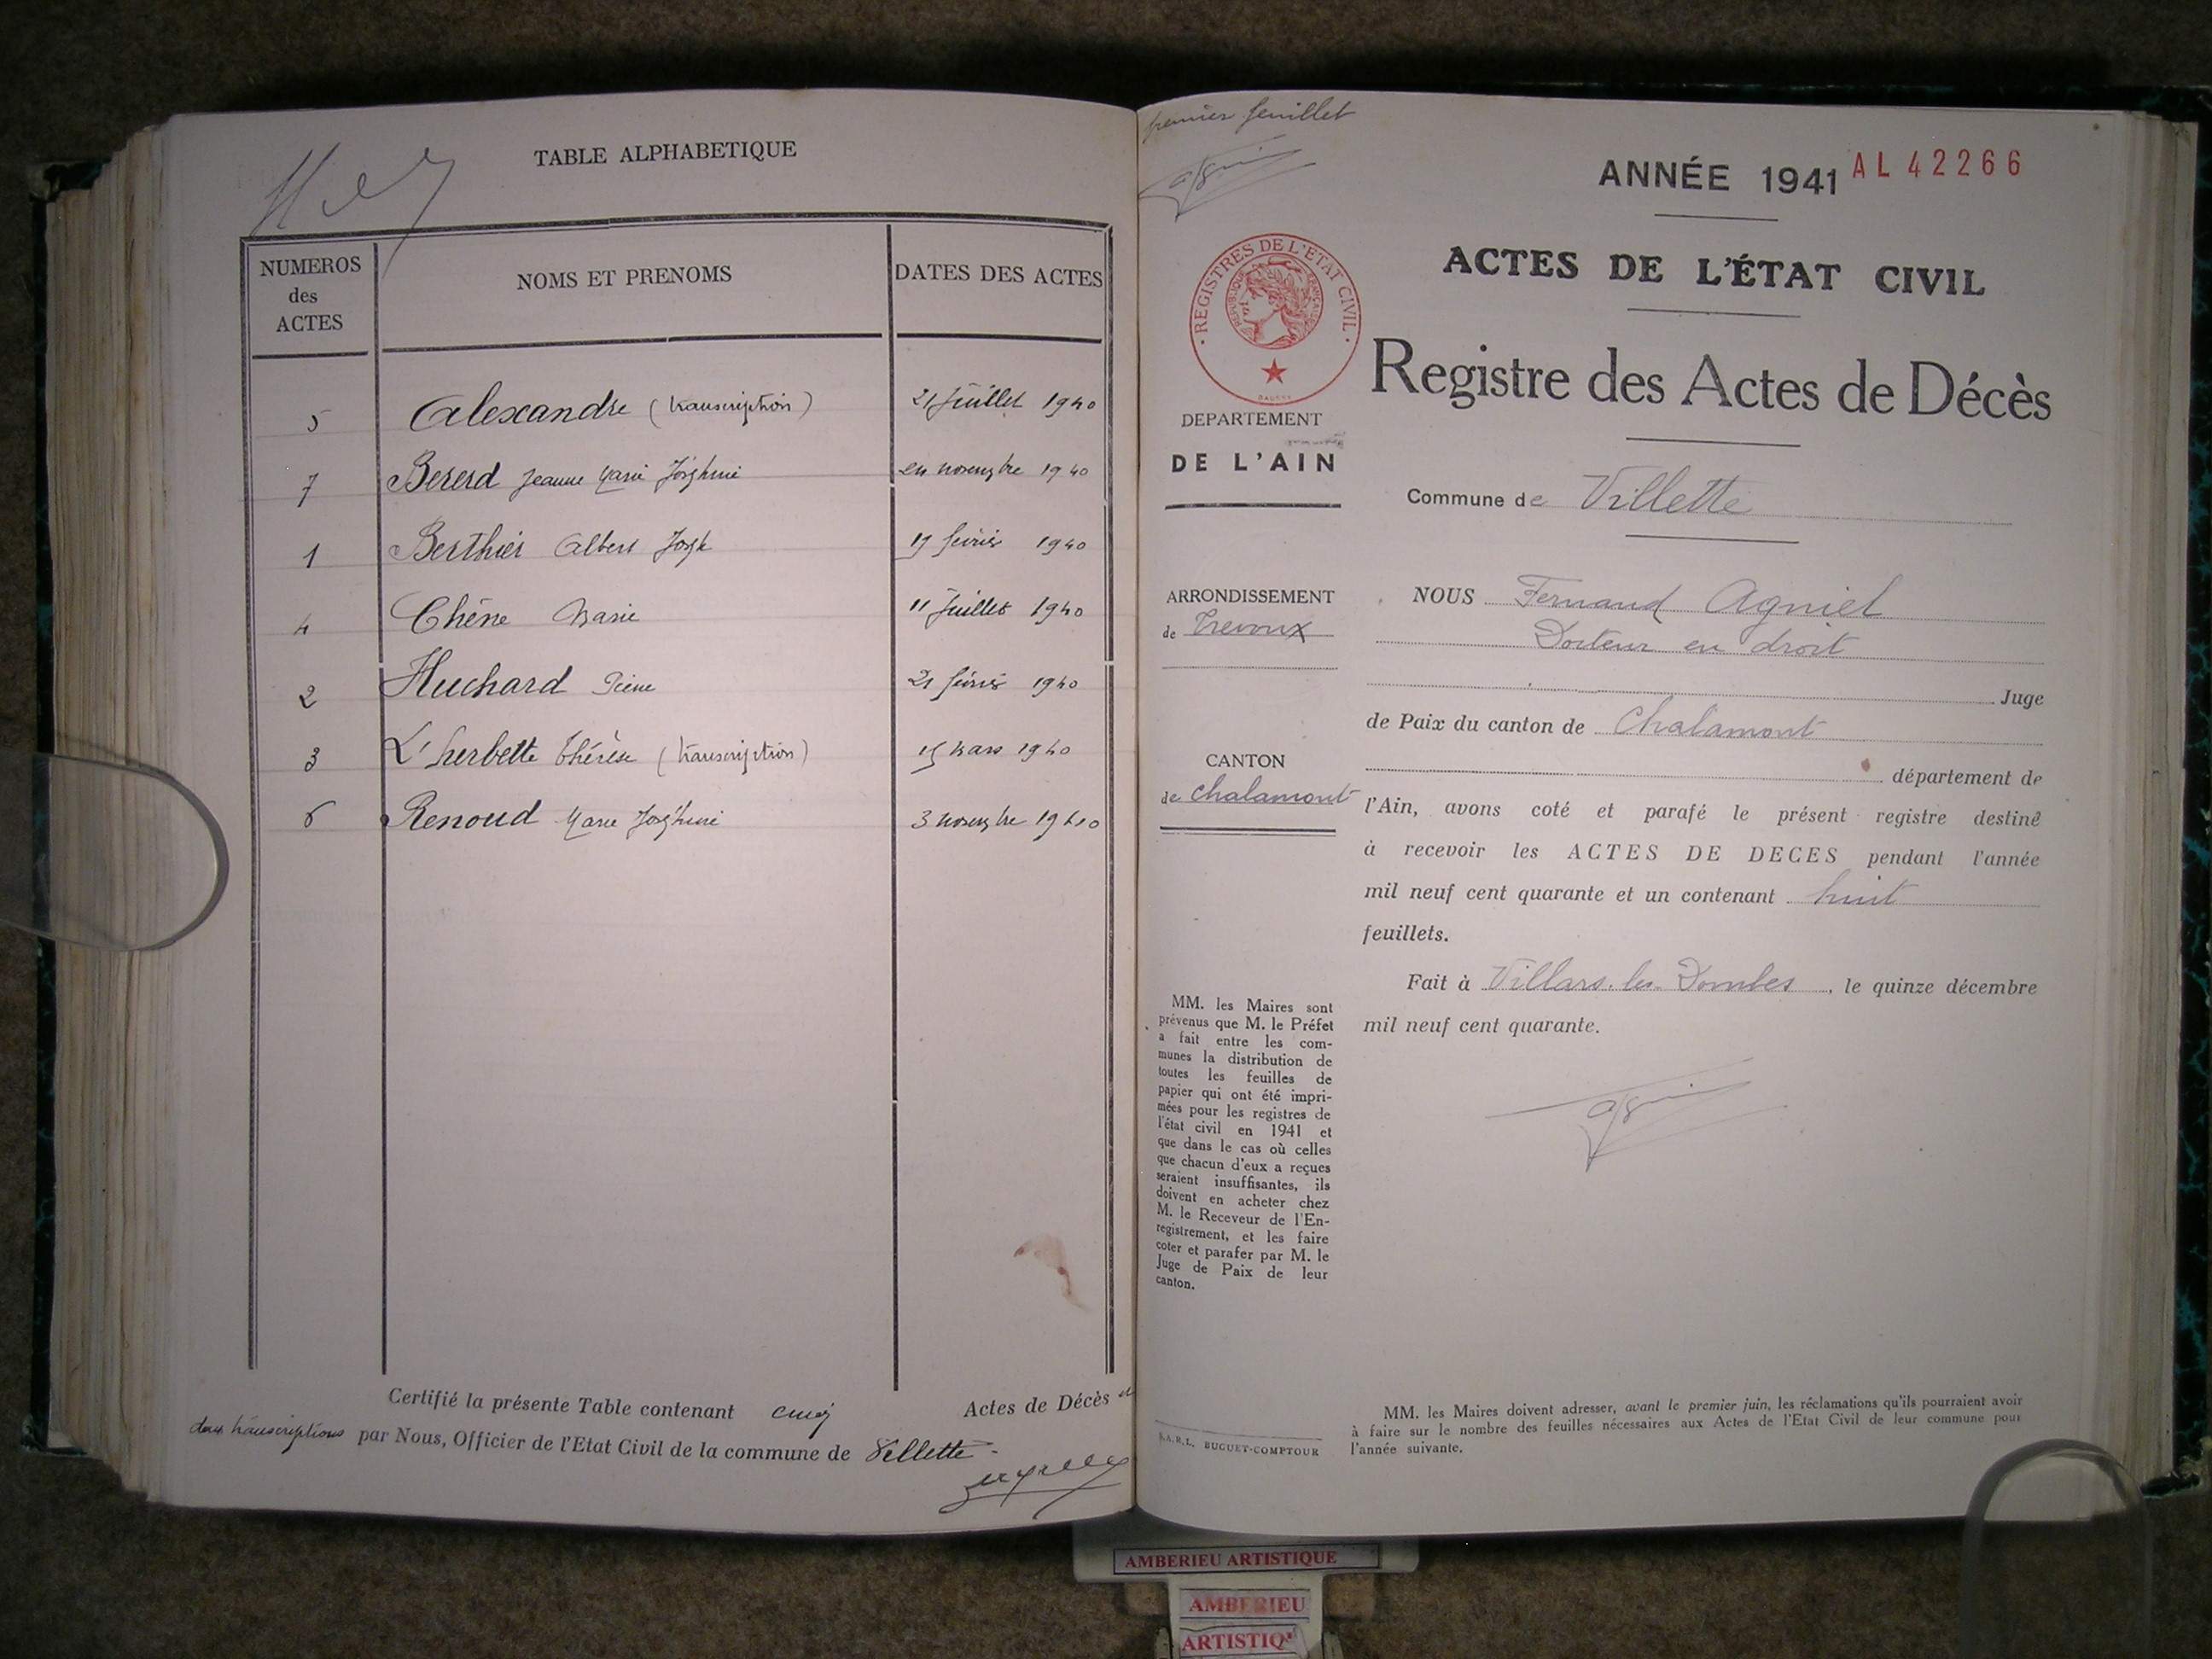 TABLE ALPHABETIQUE
NUMEROS
des
ACTES
NOMS ET PRENOMS
DATES DES ACTES
5 Alexandre (transcription) 21 Juillet 1940
7 Bererd Jeanne Marie Joséphine novembre 1940
1 Berthier Albert Joseph 19 février 1940
4 Chêne Marie 11 Juillet 1940
2 Huchard 21 février 1940
3 L'herbette Thérèse (transcription) 15 mars 1940
6 Renoud Marie Joséphine 3 novembre 1940
Certifié la présente Table contenant cinq Actes de Décès et
deux transcriptions par Nous, Officier de l'Etat Civil de la commune de Villette -
premier feuillet
ANNÉE 1941 AL 42266
ACTES DE L'ÉTAT CIVIL
Registre des Actes de Décès
REGISTRES DE L'ETAT CIVIL
REPUBLIQUE FRANÇAISE
DEPARTEMENT
DE L'AIN
Commune de Villette
ARRONDISSEMENT
de Trévoux
CANTON
de Chalamont
NOUS Fernand Agniel
Docteur en droit
Juge
de Paix du canton de Chalamont
département de
l'Ain, avons coté et parafé le présent registre destiné
à recevoir les ACTES DE DECES pendant l'année
mil neuf cent quarante et un contenant huit
feuillets.
Fait à Villars-les-Dombes, le quinze décembre
mil neuf cent quarante.
MM. les Maires sont
prévenus que M. le Préfet
a fait entre les com-
munes la distribution de
toutes les feuilles de
papier qui ont été impri-
mées pour les registres de
l'état civil en 1941 et
que dans le cas où celles
que chacun d'eux a reçues
seraient insuffisantes, ils
doivent en acheter chez
M. le Receveur de l'En-
registrement, et les faire
coter et parafer par M. le
Juge de Paix de leur
canton.
S.A.R.L. BUGUET-COMPTOUR
MM. les Maires doivent adresser, avant le premier juin, les réclamations qu'ils pourraient avoir
à faire sur le nombre des feuilles nécessaires aux Actes de l'Etat Civil de leur commune pour
l'année suivante.
AMBERIEU ARTISTIQUE
AMBERIEU
ARTISTIQ